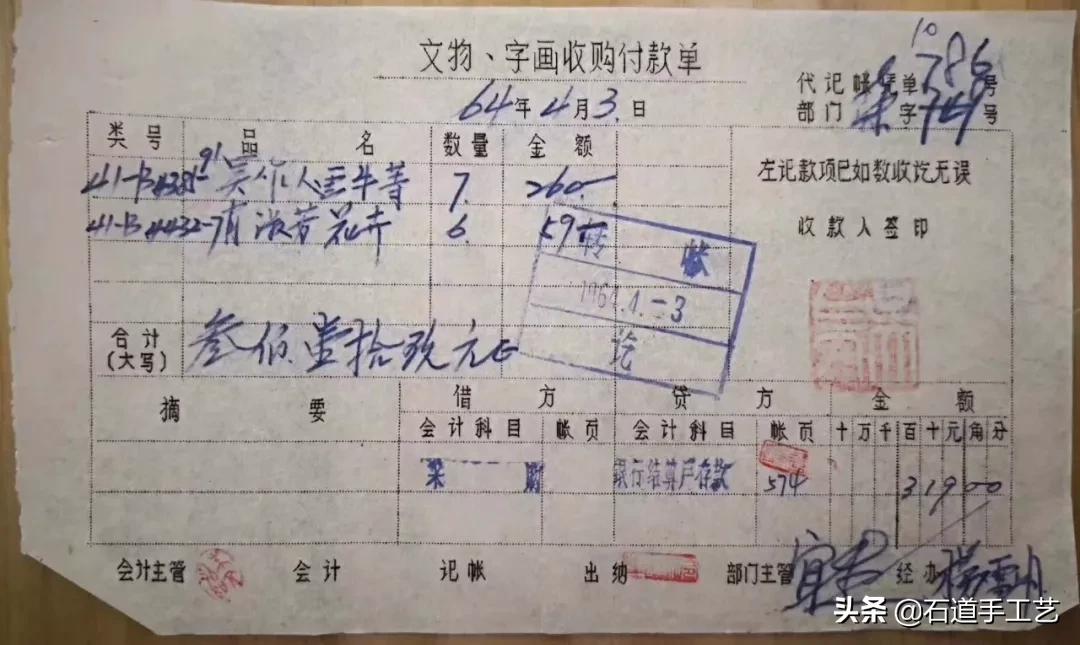 文物、字画收购付款单
64年4月3日
代记帐凭单 10 786号
部门 字 号
类号 品名 数量 金额
41-B4385-91 吴作人 牛等 7. 260-
41-B4432- 花卉 6. 59
左记款项已如数收讫无误
收款人签印
转帐
1964.4.-3
讫
合计(大写) 叁佰壹拾玖元正
摘要 借方 贷方 金额
会计科目 帐页 会计科目 帐页 十万千百十元角分
银行结算户存款 574 31900
会计主管 会计 记帐 出纳 部门主管 经办
头条 @石道手工艺